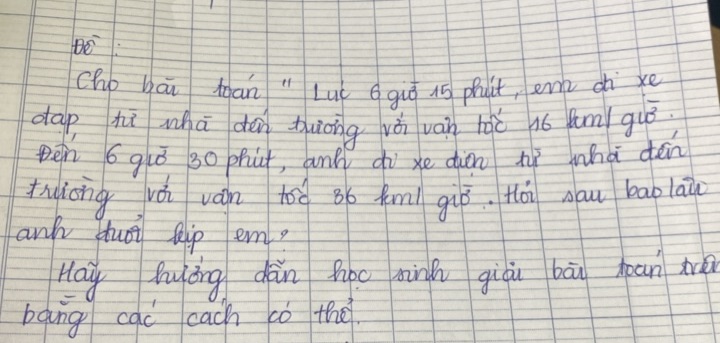 Đề :
Cho bài toán " Lúc 6 giờ 15 phút, em đi xe
đạp từ nhà đến trường với vận tốc 16 km/giờ.
Đến 6 giờ 30 phút, anh đi xe điện từ nhà đến
trường với vận tốc 36 km/giờ. Hỏi sau bao lâu
anh đuổi kịp em?
Hãy hướng dẫn học sinh giải bài toán trên
bằng các cách có thể.